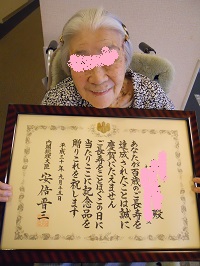 殿
あなたが百歳のご長寿を
達成されたことは誠に
慶賀にたえません
ご長寿をことほぐ日に
当たりここに記念品を
贈りこれを祝します
平成三十年九月十五日
内閣総理大臣 安倍晋三